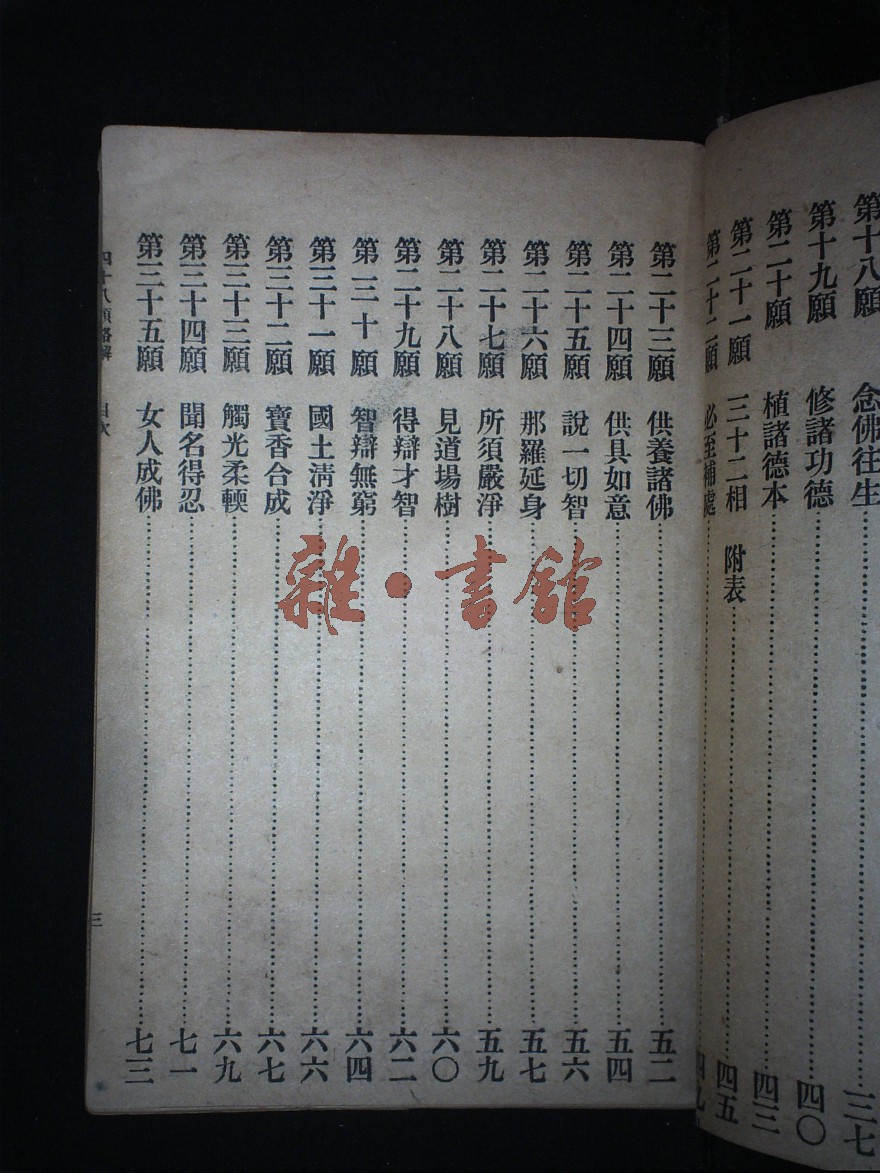 第十八願 念佛往生 三七
第十九願 修諸功德 四〇
第二十願 植諸德本 四三
第二十一願 三十二相 附表 四五
第二十二願 必至補處 四九
第二十三願 供養諸佛 五二
第二十四願 供具如意 五四
第二十五願 說一切智 五六
第二十六願 那羅延身 五七
第二十七願 所須嚴淨 五九
第二十八願 見道場樹 六〇
第二十九願 得辯才智 六二
第三十願 智辯無窮 六四
第三十一願 國土淸淨 六六
第三十二願 寶香合成 六七
第三十三願 觸光柔輭 六九
第三十四願 聞名得忍 七一
第三十五願 女人成佛 七三
四十八願略解 目次 三
雜·書館